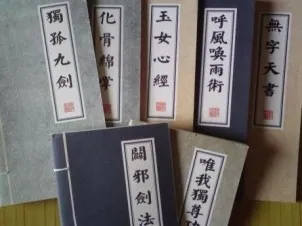 獨孤九劍
化骨綿掌
玉女心經
呼風喚雨術
無字天書
闢邪劍法
唯我獨尊功